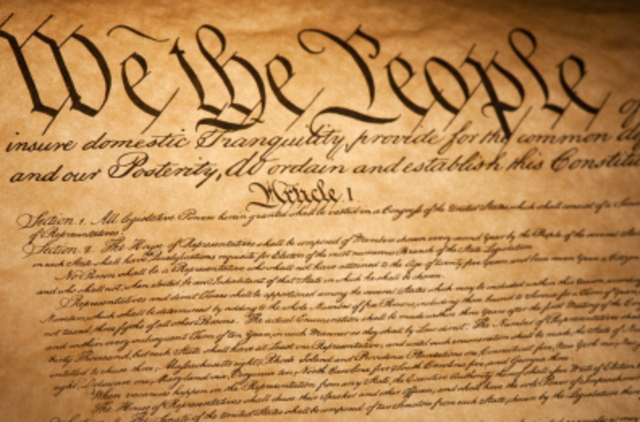 We the People of
insure domestic Tranquility, provide for the common
and our Posterity, do ordain and establish this Constitu
Article. I.
Section. 1. All legislative Powers herein granted shall be vested in a Congress of the United States, which shall consist of a Senate
of Representatives.
Section. 2. The House of Representatives shall be composed of Members chosen every second Year by the People of the several States
in each State shall have Qualifications requisite for Electors of the most numerous Branch of the State Legislature.
No Person shall be a Representative who shall not have attained to the Age of twenty five Years, and been seven Years a Citizen
and who shall not, when elected, be an Inhabitant of that State in which he shall be chosen.
Representatives and direct Taxes shall be apportioned among the several States which may be included within this Union,
Numbers, which shall be determined by adding to the whole Number of free Persons, including those bound to Service for a Term of Years
not taxed, three fifths of all other Persons. The actual Enumeration shall be made within three Years after the first Meeting of the
and within every subsequent Term of ten Years, in such Manner as they shall by Law direct. The Number of Representatives
thirty Thousand, but each State shall have at Least one Representative; and until such enumeration shall be made, the State of
entitled to chuse three, Massachusetts eight, Rhode Island and Providence Plantations one, Connecticut five, New York six,
eight, Delaware one, Maryland six, Virginia ten, North Carolina five, South Carolina five, and Georgia three.
When vacancies happen in the Representation from any State, the Executive Authority thereof shall issue Writs of Election
The House of Representatives shall chuse their Speaker and other Officers; and shall have the sole Power of Impeachment
The Senate of the United States shall be composed of two Senators from each State, chosen by the Legislature